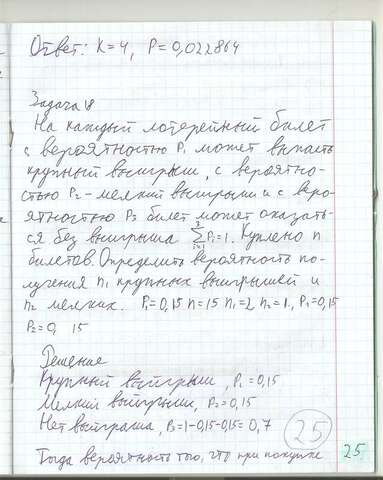 Ответ: K=4, P=0,022864
Задача 18
На каждый лотерейный билет
с вероятностью P₁ может выпасть
крупный выигрыш, с вероятно-
стью P₂ - мелкий выигрыш и с веро-
ятностью P₃ билет может оказать-
ся без выигрыша ∑Pᵢ=1. Куплено n
билетов. Определить вероятность по-
лучения n₁ крупных выигрышей и
n₂ мелких. P₁=0,15 n=15 n₁=2 n₂=1, P₁=0,15
P₂=0, 15
Решение
Крупный выигрыш, P₁=0,15
Мелкий выигрыш, P₂=0,15
Нет выиграша, P₃=1-0,15-0,15=0,7
25
Тогда вероятность того, что при покупке
25